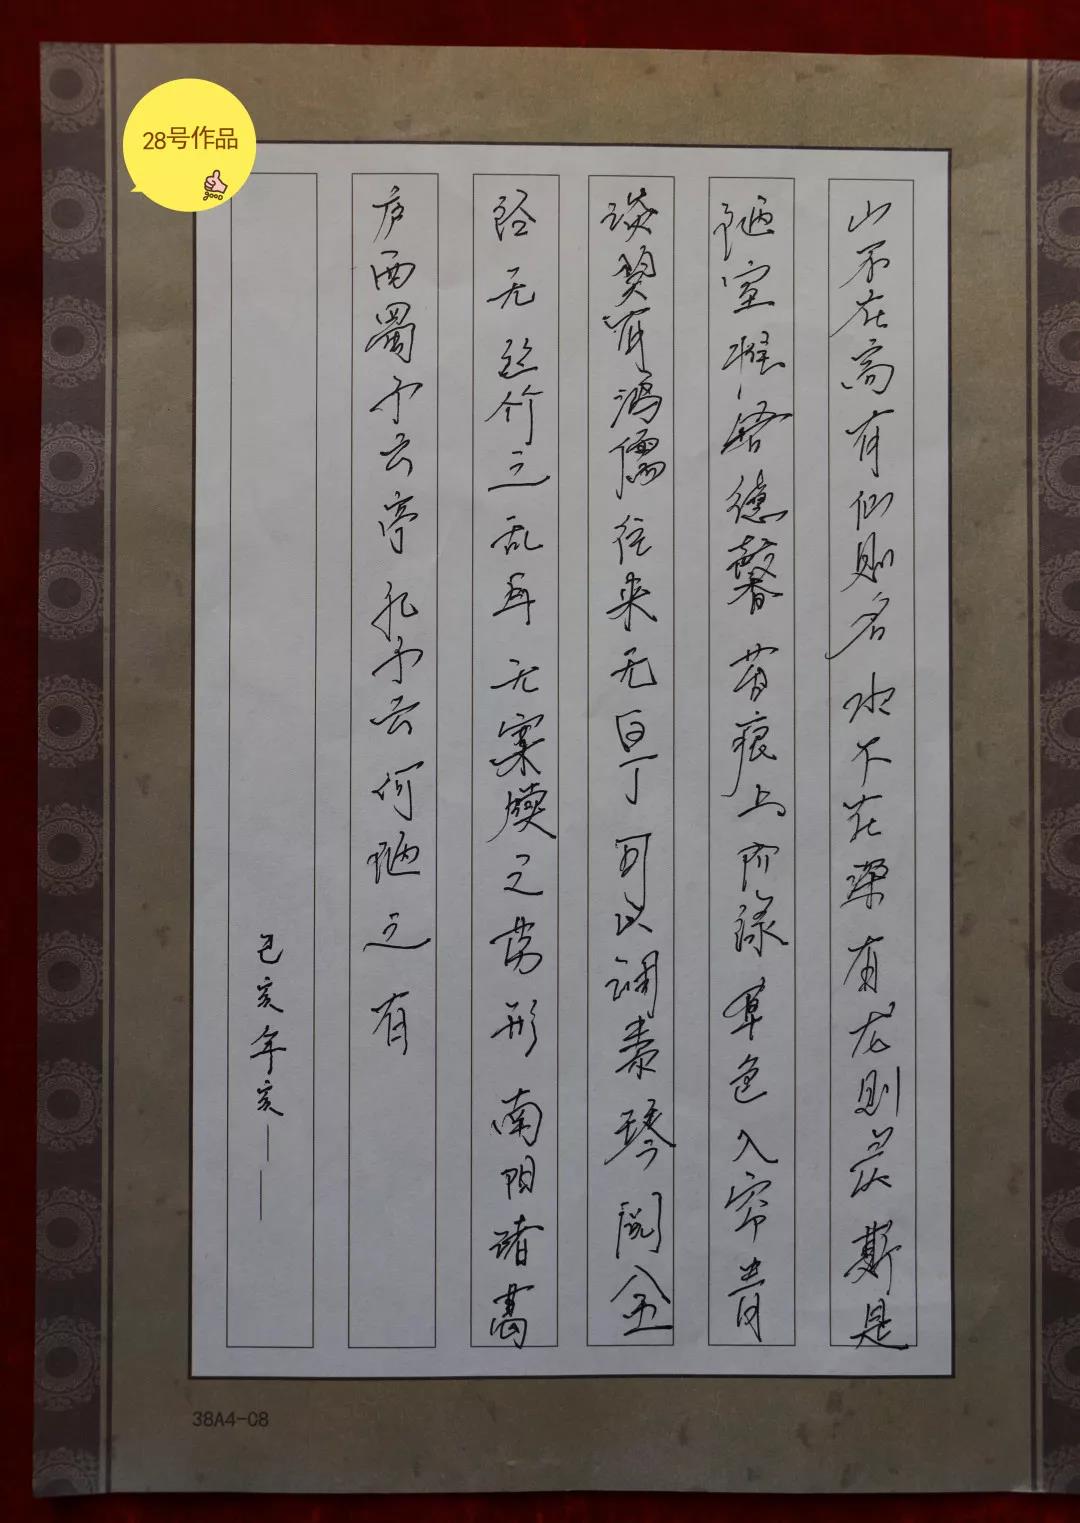 28号作品
good
山不在高有仙则名水不在深有龙则灵斯是
陋室惟吾德馨苔痕上阶绿草色入帘青
谈笑有鸿儒往来无白丁可以调素琴阅金
经无丝竹之乱耳无案牍之劳形南阳诸葛
庐西蜀子云亭孔子云何陋之有
己亥年亥——
38A4-08